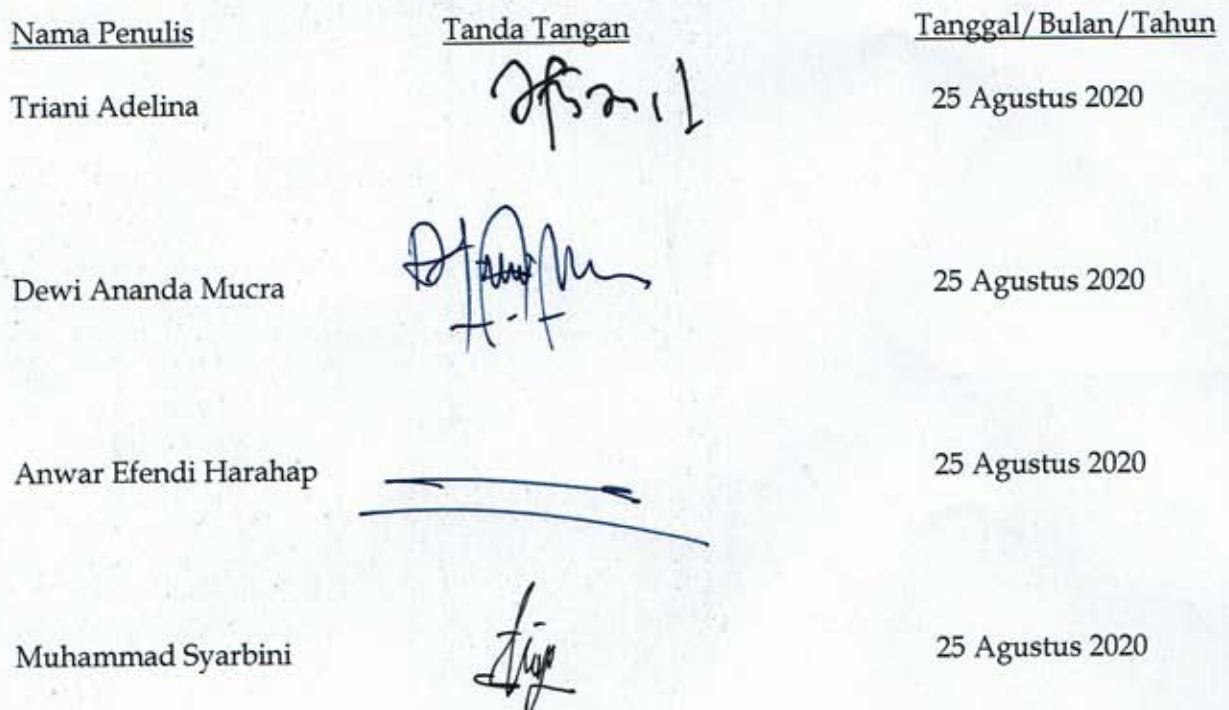 Nama Penulis Tanda Tangan Tanggal/Bulan/Tahun
Triani Adelina 25 Agustus 2020
Dewi Ananda Mucra 25 Agustus 2020
Anwar Efendi Harahap 25 Agustus 2020
Muhammad Syarbini 25 Agustus 2020